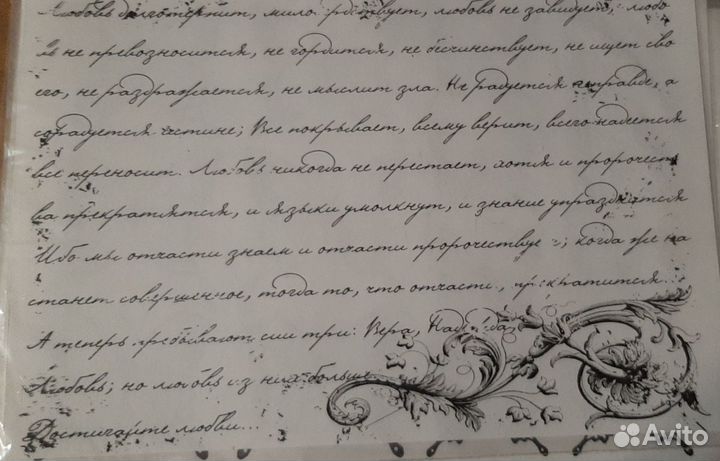 Любовь долготерпит, милосердствует, любовь не завидует, любо
вь не превозносится, не гордится, не бесчинствует, не ищет сво
его, не раздражается, не мыслит зла. Не радуется неправде, а
сорадуется истине; Все покрывает, всему верит, всего надеется
все переносит. Любовь никогда не перестает, хотя и пророчест
ва прекратятся, и языки умолкнут, и знание упразднится
Ибо мы отчасти знаем и отчасти пророчествуем; когда же на
станет совершенное, тогда то, что отчасти, прекратится...
А теперь пребывают сии три: Вера, Надежда,
Любовь; но любовь из них больше
Достигайте любви...
Avito